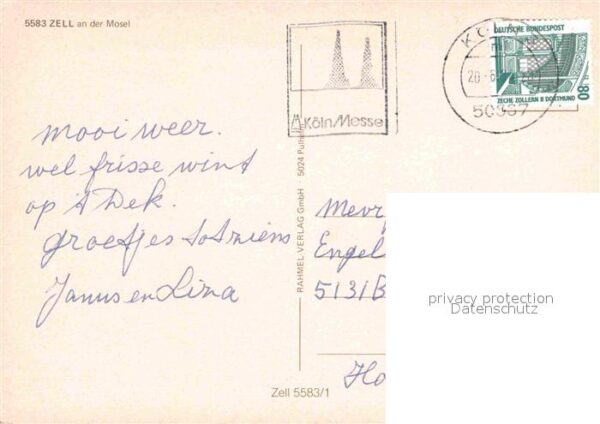 5583 ZELL an der Mosel
Köln/Messe
DEUTSCHE BUNDESPOST
80
ZECHE ZOLLERN II DORTMUND
50667
mooi weer.
wel frisse wint
op 't Dek.
groetjes tot ziens
Janus en Lina
RAHMEL VERLAG GmbH · 5024 Pulheim
Mevr
Engel
5131 B
Ho
privacy protection
Datenschutz
Zell 5583/1